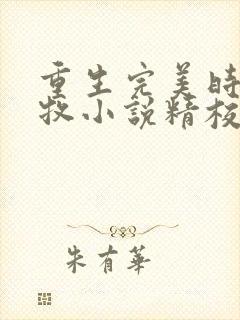 重生完美時
牧小說精校
朱有華